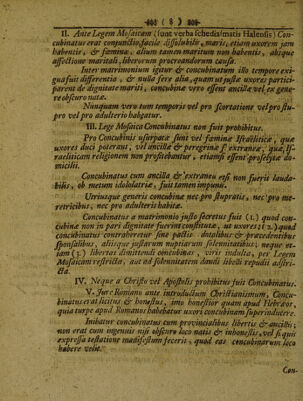 ( 8 )
II. Ante Legem Mosaicam (sunt verba schediasmatis Halensis) Con-
cubinatus erat conjunctio facile dissolubilis, maris, etiam uxorem jam
habentis, & fœminæ, alium tamen maritum non habentis, absque
affectione maritali, liberorum procreandorum causa.
Inter matrimonium igitur & concubinatum illo tempore exi-
gua fuit differentia, & nulla fere alia, quam ut justæ uxores partici-
parent de dignitate mariti, concubinæ vero essent ancillæ vel ex ge-
nere obscuro natæ.
Nunquam vero tum temporis vel pro scortatione vel pro stu-
pro vel pro adulterio habgatur.
III. Lege Mosaica Concubinatus non fuit prohibitus.
Pro Concubinis usurpatæ sunt vel fœminæ Israëliticæ, quæ
uxores duci poterant, vel ancillæ & peregrinæ & extraneæ, quæ Is-
raëliticam religionem non profitebantur, etiamsi essent proselytæ do-
micilii.
Concubinatus cum ancilla & extranea etsi non fuerit lauda-
bilis, ob metum idololatriæ, fuit tamen impunis.
Utriusque generis concubinæ nec pro stupratis, nec pro me-
retricibus, nec pro adulteris habitæ.
Concubinatus a matrimonio justo secretus fuit (1.) quod con-
cubinæ non in pari dignitate fuerint constitutæ, ac uxores (2.) quod
concubinatus contraheretur sine pactis dotalibus & præcedentibus
sponsalibus, aliisque justarum nuptiarum solennitatibus; neque et-
iam (3.) libertas dimittendi concubinas, viris indulta, per Legem
Mosaicam restricta, aut ad solennitatem dandi libelli repudii adstri-
cta.
IV. Neque a Christo vel Apostolis prohibitus fuit Concubinatus.
V. Jure Romano ante introductum Christianismum, Concu-
binatus erat licitus & honestus, imo honestior quam apud Hebræos,
quia turpe apud Romanos habebatur uxori concubinam superinducere.
Inibatur concubinatus cum provincialibus libertis & ancillis;
non erat cum ingenuis nisi obscuro loco natis & inhonestis, vel si quis
expressa testatione madifestum fecerit, quod eas concubinarum loco
habere velit.
Con-